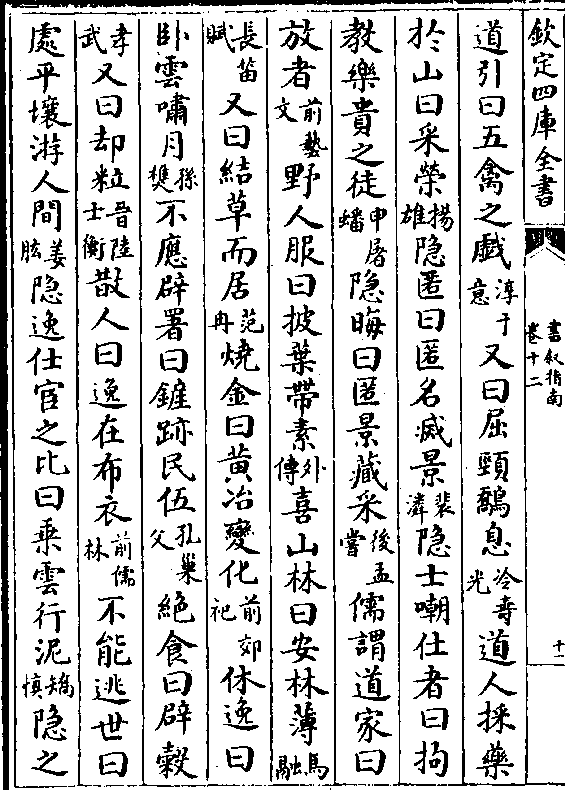 欽定四庫全書
書叙指南
卷十二
十一
道引曰五禽之戱淳于意又曰屈頸鷮息冷壽光道人採藥
扵山曰采榮揚雄隐匿曰匿名滅景裴潾隐士嘲仕者曰拘
教樂貴之徒申屠蟠隐晦曰匿景藏采後孟嘗儒謂道家曰
放者前藝文野人服曰披葉帶素外傳喜山林曰安林薄馬融
長笛賦又曰結草而居范冉燒金曰黄冶變化前郊祀休逸曰
卧雲嘯月孫樵不應辟署曰鏟跡民伍孔巢父絶食曰辟榖
孝武又曰却粒晋陸士衡散人曰逸在布衣前儒林不能逃世曰
處平壤游人間姜肱隐逸仕宦之比曰乗雲行泥矯慎隐之